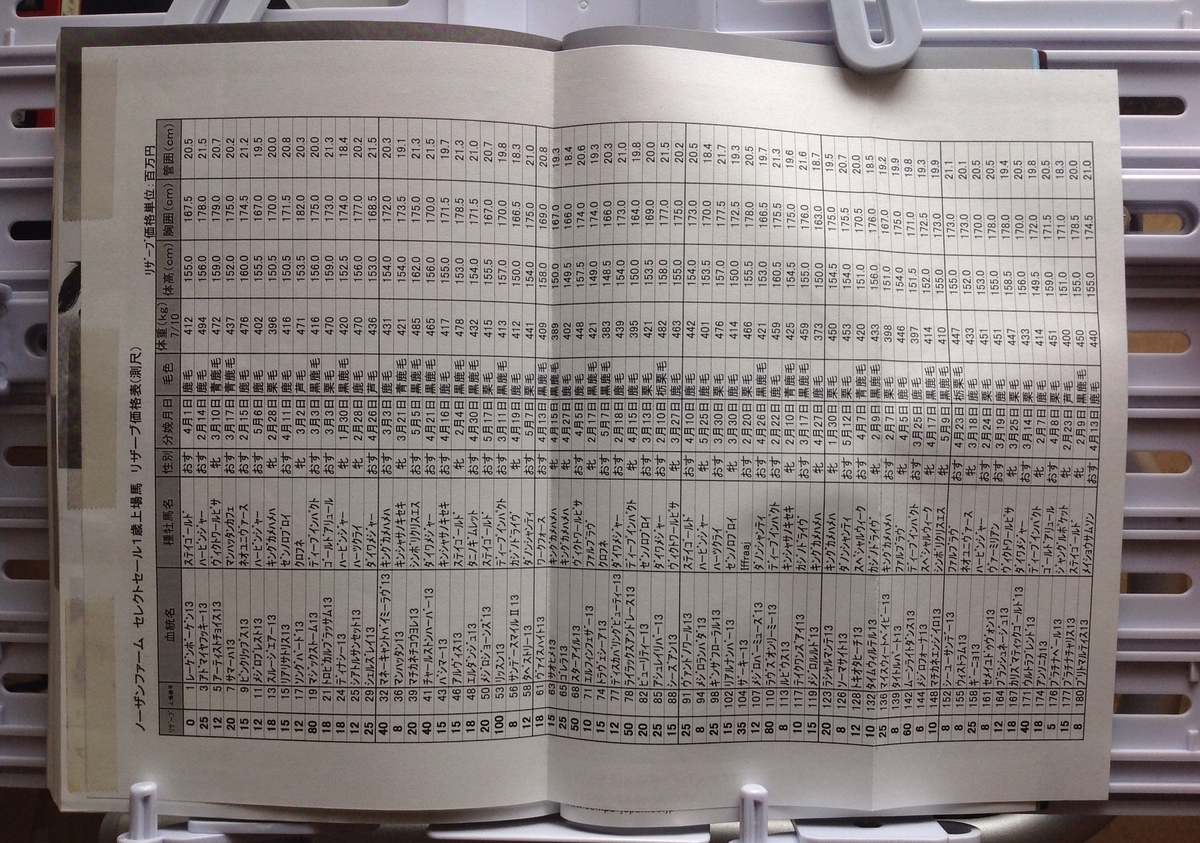 ノーザンファーム セレクトセール1歳上場馬 リザーブ価格表(測尺)
リザーブ価格単位:百万円
リザーブ 上場番号 血統名 種牡馬名 性別 分娩月日 毛色 体重(kg) 7/10 体高(cm) 胸囲(cm) 管囲(cm)
0 1 レーゲンボーゲン13 ステイゴールド おす 4月1日 鹿毛 412 155.0 167.5 20.5
25 3 アドマイヤウッキー13 ハービンジャー おす 2月14日 鹿毛 494 156.0 178.0 21.5
12 5 アーティストチョイス13 ヴィクトワールピサ おす 3月10日 青鹿毛 472 159.0 179.0 20.7
20 7 サマーハ13 マンハッタンカフェ 牝 3月17日 青鹿毛 437 152.0 175.0 20.2
15 9 ピンクリップス13 ネオユニヴァース おす 2月15日 鹿毛 476 160.0 174.5 21.2
12 11 メジロアレスト13 ハービンジャー 牝 5月6日 鹿毛 402 155.5 167.0 19.5
18 13 スルーシズエアー13 キングカメハメハ 牝 2月28日 栗毛 396 150.5 170.0 20.0
15 15 リリサイド13 ゼンノロブロイ おす 4月11日 鹿毛 416 150.5 171.5 20.8
12 17 ソングバード13 クロフネ おす 3月2日 芦毛 471 153.5 182.0 20.3
80 19 マジックストーム13 ディープインパクト 牝 3月3日 黒鹿毛 416 156.0 175.0 20.0
21 トロピカルブラッサム13 ゴールドアリュール おす 3月3日 鹿毛 470 159.0 173.0 21.3
24 ディナシー13 ハービンジャー 牝 1月30日 黒鹿毛 420 152.5 174.0 18.4
25 アドマイヤサンセット13 ハーツクライ 牝 2月28日 鹿毛 470 156.0 177.0 20.2
25 29 シェルズレイ13 ダイワメジャー おす 4月26日 芦毛 436 153.0 168.5 21.5
40 32 マネーキャントバイミーラヴ13 キングカメハメハ おす 4月3日 鹿毛 431 154.0 172.0 20.3
12 36 マンハッタン13 キンシャサノキセキ 牝 3月21日 青鹿毛 421 154.0 173.5 19.1
20 39 マチカネチコウヨレ13 シンボリクリスエス おす 4月5日 黒鹿毛 485 162.0 175.0 21.3
40 41 チャールストンハーバー13 ダイワメジャー おす 4月21日 黒鹿毛 465 156.0 170.0 21.5
15 43 ハンマー13 キンシャサノキセキ 牝 4月16日 鹿毛 417 155.0 171.5 19.7
15 46 アルヴィス13 ステイゴールド おす 2月4日 黒鹿毛 478 153.0 178.5 21.3
12 48 エルダンジュ13 タニノギムレット おす 4月30日 黒鹿毛 432 154.0 171.5 21.0
20 50 メジロジョーンズ13 ステイゴールド おす 5月17日 栗毛 415 155.5 167.0 20.7
100 53 リッスン13 ディープインパクト 牝 3月11日 黒鹿毛 413 157.0 170.0 19.8
8 56 サンデースマイルⅡ13 カジノドライヴ 牝 4月19日 鹿毛 412 150.0 166.5 18.3
12 58 タベストリー13 ハーツクライ おす 5月17日 栗毛 441 154.0 175.0 21.0
18 61 ヴェイスペイト13 ワークフォース おす 4月13日 黒鹿毛 409 158.0 169.0 20.8
15 63 サダビヒ13 キングカメハメハ 牝 4月15日 黒鹿毛 389 150.0 167.0 19.3
25 65 コレラ13 キングカメハメハ 牝 4月27日 鹿毛 402 149.5 166.0 18.4
50 68 スターアイル13 ヴィクトワールピサ おす 4月25日 鹿毛 448 157.5 174.0 20.6
10 72 ファルブラヴ 牝 2月11日 青鹿毛 421 149.0 174.0 19.3
15 74 クロフネ おす 5月17日 黒鹿毛 383 148.5 166.0 20.3
12 77 ディスカバリングビューティー13 ダイワメジャー おす 2月18日 鹿毛 439 154.0 173.0 21.0
50 78 ライラックスアンドレース13 ディープインパクト 牝 4月15日 鹿毛 395 150.0 164.0 19.8
20 82 ビューリティ13 ゼンノロブロイ おす 3月13日 鹿毛 421 153.5 169.0 20.0
25 85 アシュレイリバー13 ダイワメジャー おす 2月10日 栃栗毛 482 158.0 177.0 21.5
15 88 シーズアン13 ヴィクトワールピサ おす 3月27日 鹿毛 463 155.0 175.0 20.2
25 91 ヴィアンローズ13 ステイゴールド おす 4月19日 鹿毛 442 154.0 173.0 20.5
8 94 メジロランバダ13 ハービンジャー 牝 5月25日 鹿毛 401 153.5 170.0 18.4
12 98 キンザザフローラル13 ハーツクライ おす 3月30日 鹿毛 476 157.0 177.5 21.7
10 102 リアルナンバー13 ゼンノロブロイ 牝 3月30日 黒鹿毛 414 150.0 172.5 19.3
35 104 サーキー13 Iffraaj おす 2月20日 栗毛 466 155.5 178.0 20.5
12 107 メジロハーミューズ13 ダノンシャンティ おす 4月26日 黒鹿毛 421 153.0 166.5 19.7
80 110 ラヴズオンリーミー13 ディープインパクト おす 2月22日 黒鹿毛 459 160.5 175.5 21.3
8 113 ルビウス13 キンシャサノキセキ 牝 2月10日 青鹿毛 425 154.5 175.0 19.6
10 117 ディケンズアイ13 カジノドライヴ おす 3月17日 黒鹿毛 459 155.0 176.0 21.6
15 119 メジロルルド13 キングカメハメハ 牝 4月27日 鹿毛 373 150.0 163.0 18.7
20 123 シェルズマンテ13 キングカメハメハ おす 1月30日 栗毛 450 154.5 175.0 19.5
12 126 ソーマサイト13 ダノンシャンティ おす 5月12日 栗毛 453 154.0 175.5 20.7
12 128 トキオタヒーテ13 スペシャルウィーク おす 3月17日 青鹿毛 420 151.0 170.5 20.0
10 132 タイムウィルテル13 カジノドライヴ 牝 2月9日 黒鹿毛 433 156.0 176.0 18.5
25 136 スマイルイートベイビー13 キングカメハメハ 牝 3月8日 栗毛 398 151.0 167.0 19.2
8 139 ケイレルハート13 ファルブラヴ おす 4月5日 鹿毛 446 154.0 175.0 19.9
60 142 ムーンライトダンス13 ディープインパクト おす 3月25日 鹿毛 397 151.5 171.0 19.8
6 144 メジロシャオナー13 スペシャルウィーク 牝 4月17日 黒鹿毛 414 152.0 172.5 19.3
10 148 マチカネエンジイロ13 シンボリクリスエス 牝 5月9日 黒鹿毛 410 155.0 173.0 19.9
8 152 シーユーサンデー13 ファルブラヴ おす 4月23日 栃栗毛 447 155.0 173.0 21.1
8 155 ウィストラム13 ネオユニヴァース 牝 3月18日 鹿毛 433 152.0 173.0 20.1
25 158 キーニョ13 ハービンジャー おす 2月24日 栗毛 451 153.0 170.0 20.5
8 161 サイコトヴゥオン13 ヴァーミリアン おす 3月9日 鹿毛 451 155.0 178.0 20.5
12 164 ブラッシュエネージュ13 ハービンジャー 牝 3月19日 栗毛 447 156.0 178.0 19.4
18 167 ホリスマティックゴールド13 ヴィクトワールピサ 牝 3月25日 栗毛 433 158.5 170.0 20.5
40 171 カリズマティックゴールド13 ダイワメジャー おす 3月14日 栗毛 414 172.0 19.8
18 174 アンソニカ13 ディープインパクト 牝 2月7日 鹿毛 451 149.5 171.5 20.5
5 176 プラチナベール13 ゴールドアリュール 牝 4月8日 栗毛 400 159.0 171.0 18.3
15 177 プラチナチャリス13 ジャングルポケット 牝 2月23日 芦毛 450 151.0 178.5 20.0
8 180 プリズマルティス13 メイショウサムソン おす 4月13日 鹿毛 440 155.0 174.5 21.0